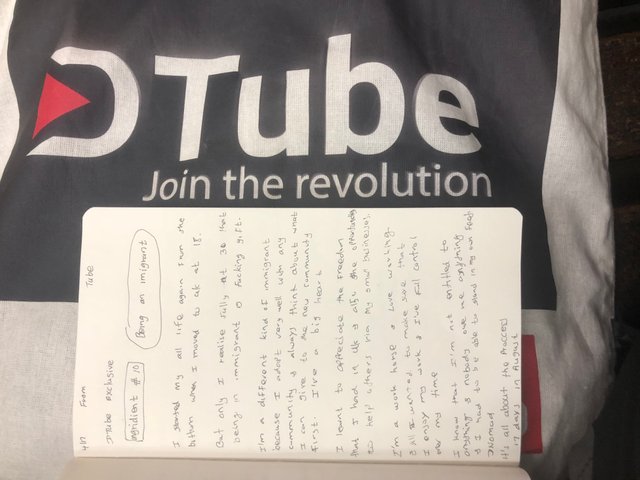 DTube
Join the revolution
417 From Tube
DTube Exclusive
Ingridient #10 Being an imigrant
I started my all life again from the
bottom when I moved to uk at 18
But only I realise fully at 36 that
being in immigrant a fucking gift.
I'm a different kind of immigrant
because I adopt very well with any
community & always think about what
I can give to the new community
first. I've a big heart
I learnt to appreciate the freedom
that I hand in Uk & also the opportunity
to help others via my own businesses.
I'm a work horse & love working.
& all I wanted to make sure that
I enjoy my work & I've full control
over my time
I know that I'm not entitled to
anything & nobody owe me anything
& I had to be able to stand in my own feet
It's all about the process
17 days in August